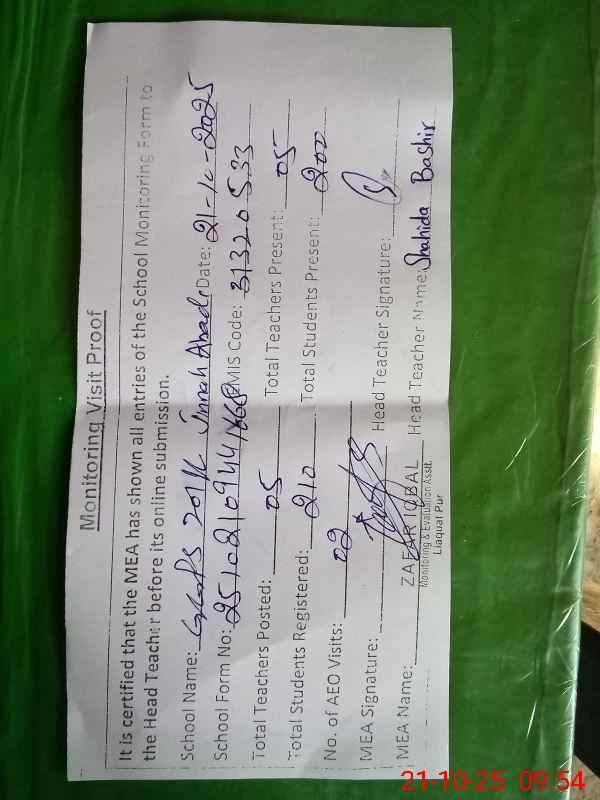 Monitoring Visit Proof
It is certified that the MEA has shown all entries of the School Monitoring Form to
the Head Teacher before its online submission.
School Name: Jinnah Abadi Date: 21-10-2025
School Form No: EMIS Code: 31320533
Total Teachers Posted: 05 Total Teachers Present: 05
Total Students Registered: 210 Total Students Present: 200
No. of AEO Visits: 02
MEA Signature: Head Teacher Signature:
MEA Name: ZAFAR IQBAL Head Teacher Name: Shahida Bashir
Monitoring & Evaluation Asstt.
Liaquat Pur
21-10-25 09:54